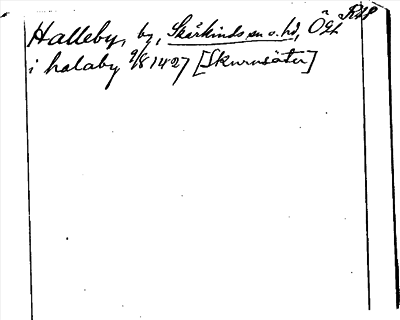 Halleby, by, Skärkinds sn o. hd, Ögl
i halaby 9/8 1427 [Skurusäter]